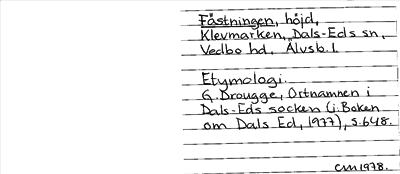 Fästningen, höjd,
Klevmarken, Dals-Eds sn,
Vedbo hd, Älvsb. l.
Etymologi.
G. Drougge, Ortnamnen i
Dals-Eds socken (i: Boken
om Dals Ed, 1977), s. 648.
CM 1978.